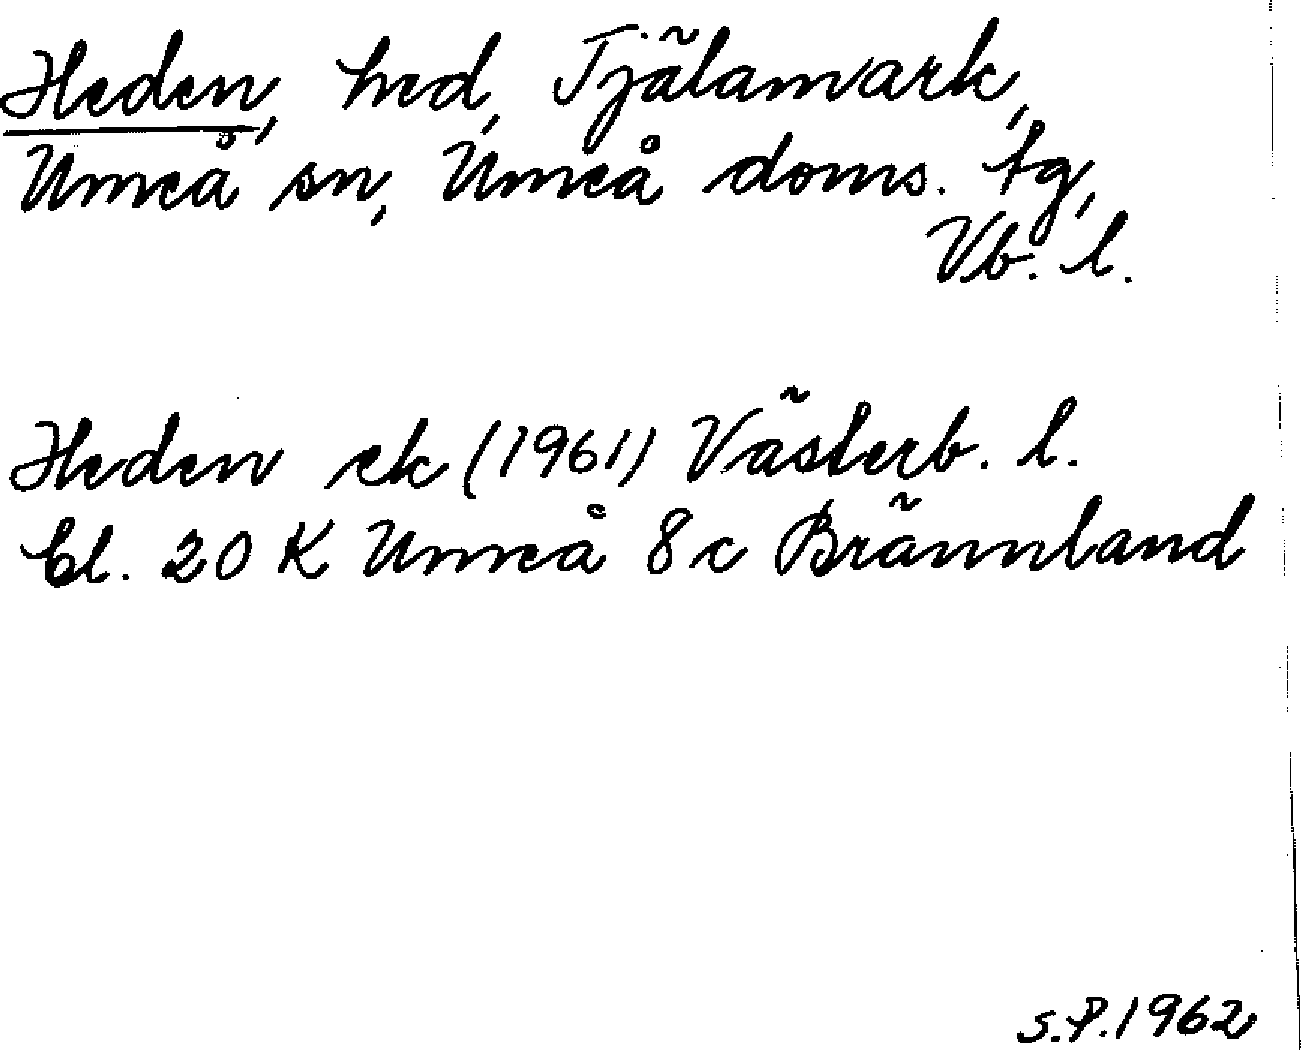 Heden, hed, Tjälamark,
Umeå sn, Umeå doms. tg,
Vb. l.
Heden ek (1961) Västerb. l.
bl. 20 K Umeå 8c Brännland
S.P. 1962